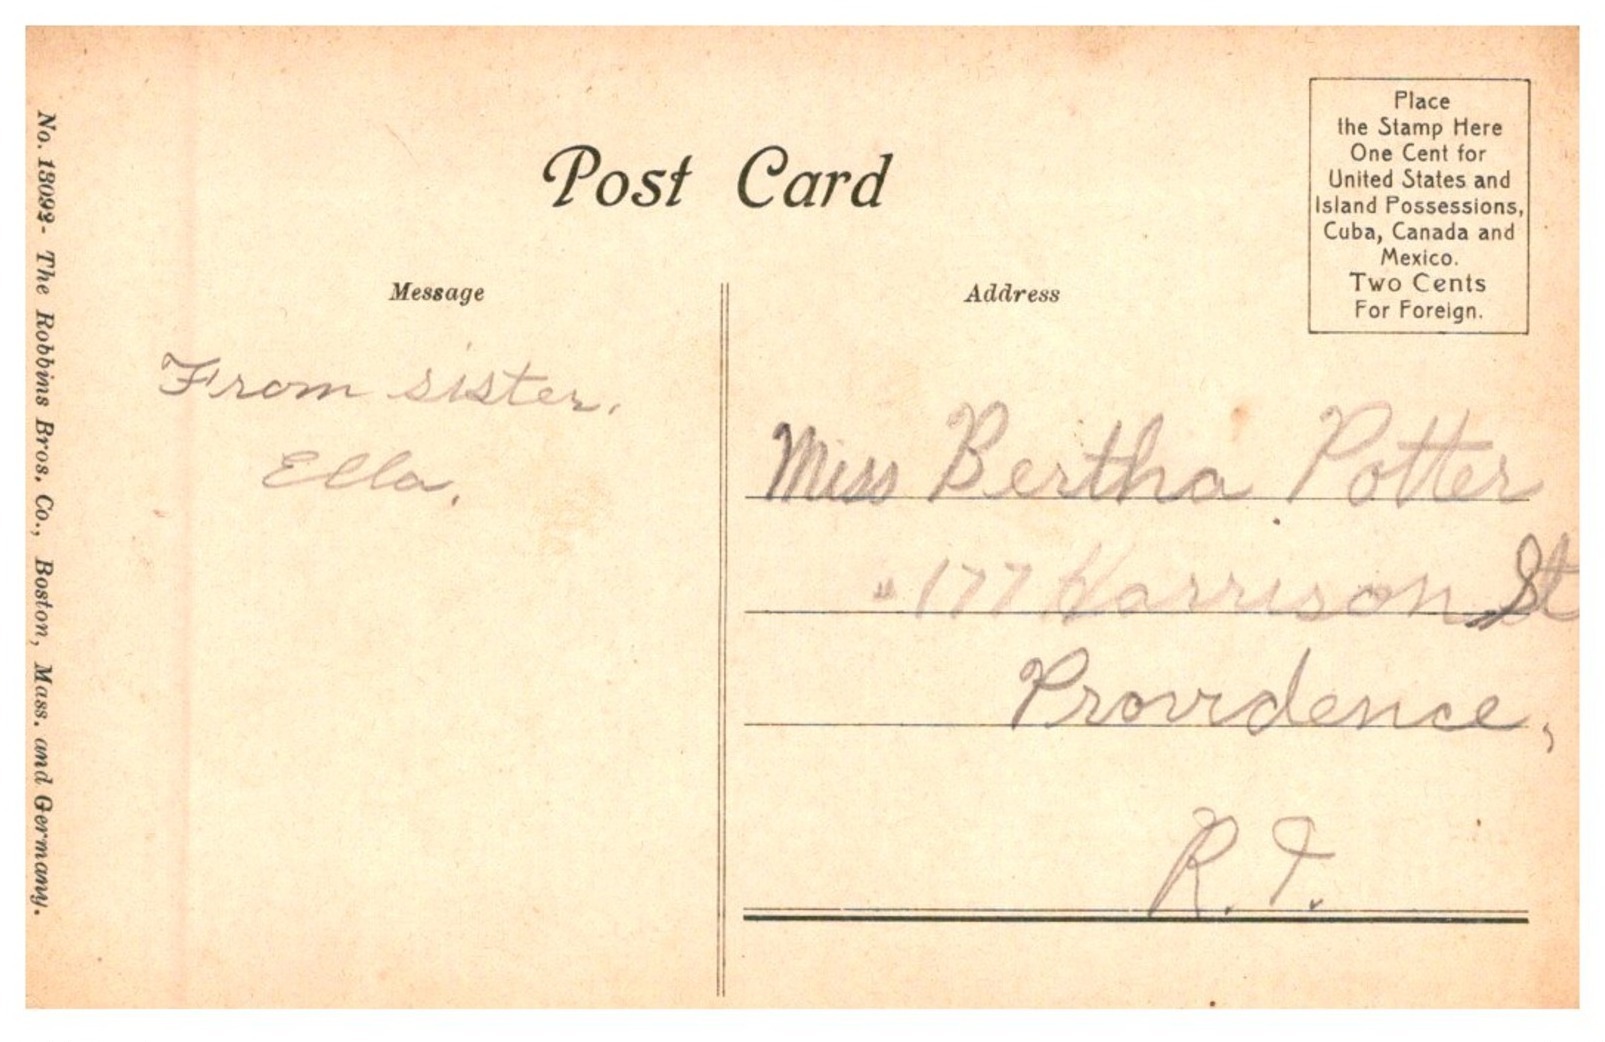 Post Card
Place
the Stamp Here
One Cent for
United States and
Island Possessions,
Cuba, Canada and
Mexico.
Two Cents
For Foreign.
Message
From sister.
Ella.
Address
Miss Bertha Potter
" 177 Harrison St
Providence,
R.I.
No. 13092- The Robbins Bros. Co., Boston, Mass. and Germany.